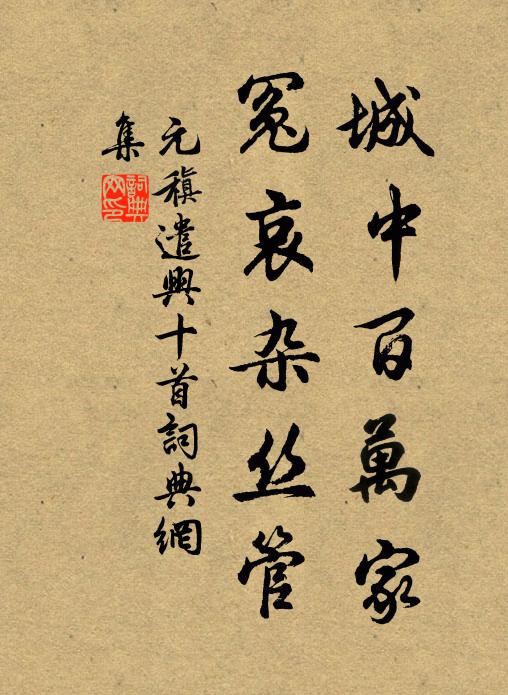 城中百萬家
冤哀杂丝管
元稹遣興十首詞典網
集
詞典網印